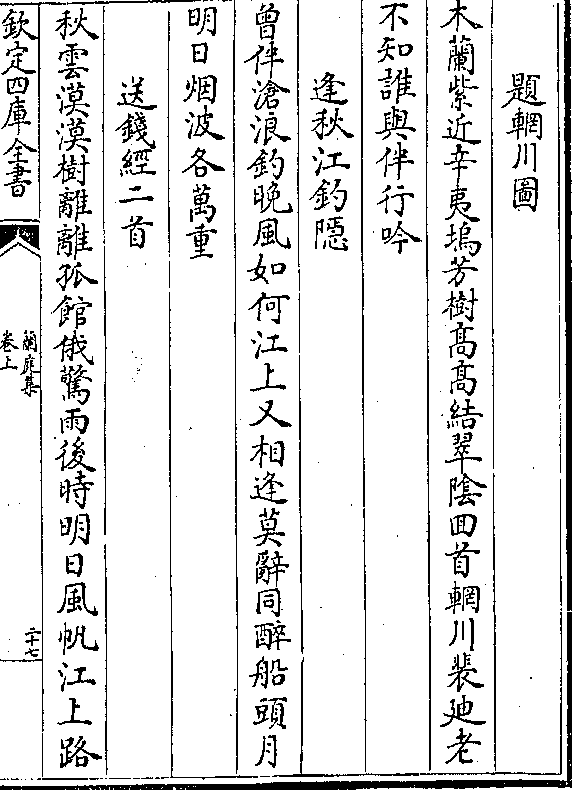 題輞川圖
木蘭紫近辛夷塢芳樹髙髙結翠陰回首輞川裴廸老
不知誰與伴行吟
逢秋江釣隠
曾伴滄浪釣晚風如何江上又相逢莫辭同醉船頭月
明日烟波各萬重
送錢經二首
秋雲漠漠樹離離孤館俄驚雨後時明日風帆江上路
欽定四庫全書
蘭庭集
卷上
二十七